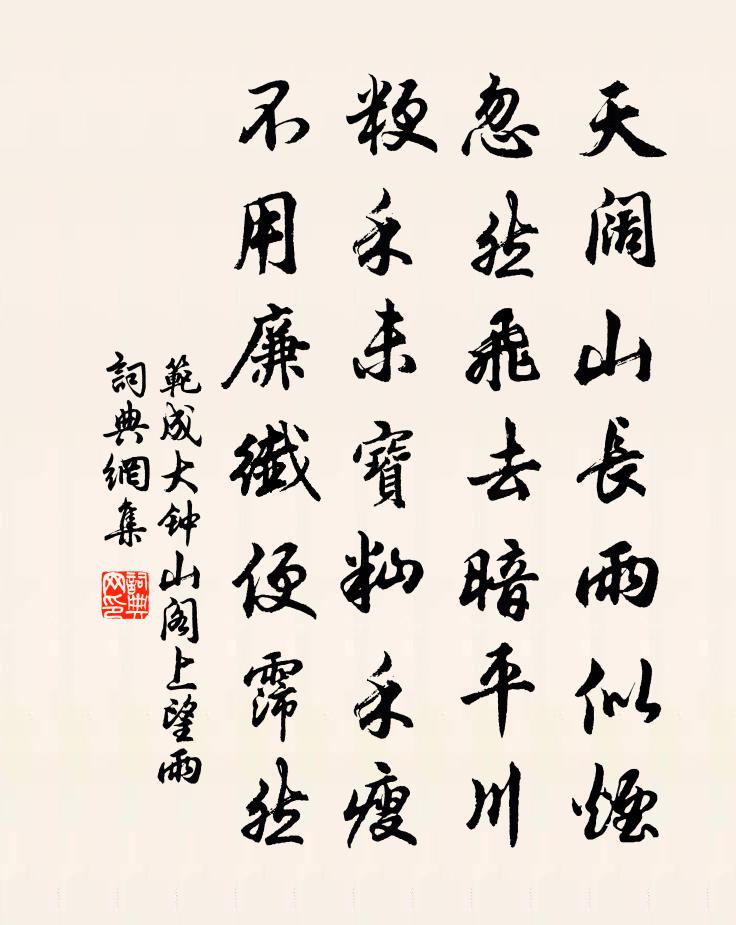 天闊山長雨似煙
忽然飛去暗平川
粳禾未寶籼禾瘦
不用廉纖便霈然
範成大钟山閣上望雨
詞典網集
詞典
网印